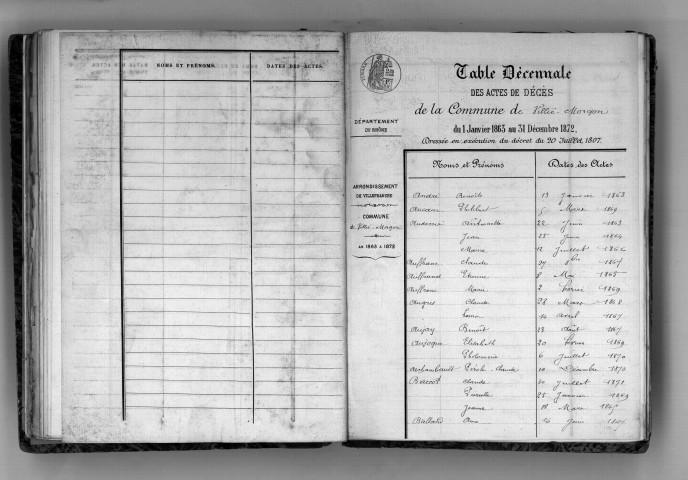 NOMS ET PRÉNOMS. DATES DES ACTES.
Table Décennale
DES ACTES DE DÉCÈS
de la Commune de Villié-Morgon
du 1 Janvier 1863 au 31 Décembre 1872,
Dressée en exécution du décret du 20 Juillet 1807.
DÉPARTEMENT
DU RHÔNE
ARRONDISSEMENT
DE VILLEFRANCHE
COMMUNE
de Villié-Morgon
AN 1863 À 1872
Noms et Prénoms Dates des Actes
André Benoîte 13 Janvier 1863
Philibert 5 Mars 1869
Antoinette 22 Juin 1863
Jean 25 Juin 1864
Marie 12 Juillet 1866
Claude 27 8bre 1867
Etienne 8 Mai 1865
Marie 2 Février 1869
Claude 28 Mars 1868
14 Avril 1867
Aujay Benoît 23 Août 1867
Aujogue Elisabeth 20 Février 1869
Philomène 6 Juillet 1870
Archambault Claude 10 Décembre 1870
Baccot Claude 20 Juillet 1871
Pierrette 25 Janvier 1869
Jeanne 18 Mars 1865
16 Juin